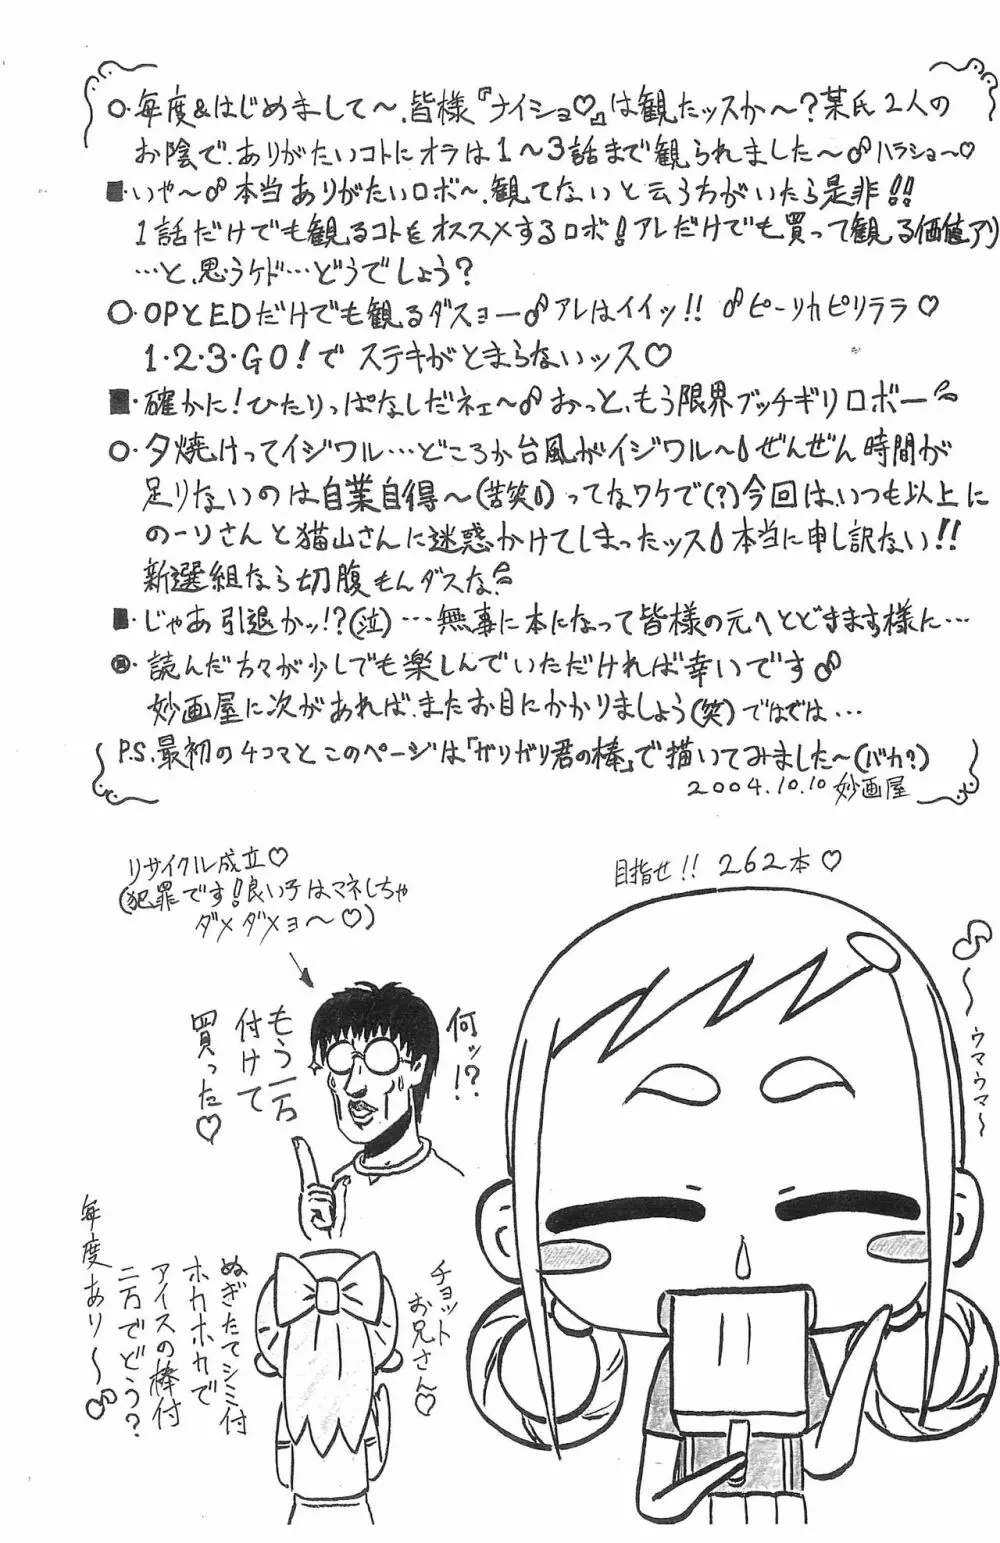 ○・毎度&はじめまして〜、皆様『ナイショ♡』は観たッスか〜?某氏2人の
お陰で、ありがたいコトにオラは1〜3話まで観られました〜♂ハラショ〜♡
■・いや〜♂本当ありがたいロボ〜、観てないと云う方がいたら是非!!
1話だけでも観るコトをオススメするロボ!アレだけでも買って観る価値アリ
…と、思うケド…どうでしょう?
○・OPとEDだけでも観るダスョー♂アレはイイッ!! ♂ピーリカピリララ♡
1・2・3・GO!で ステキがとまらないッス♡
■・確かに!ひたりっぱなしだネェ〜♂おっと、もう限界ブッチギリロボー
○・夕焼けってイジワル…どころか台風がイジワル〜ぜんぜん時間が
足りないのは自業自得〜(苦笑)ってなワケで(?)今回は、いつも以上に
のーりさんと猫山さんに迷惑かけてしまったッス 本当に申し訳ない!!
新選組なら切腹もんダスな。
■・じゃあ引退かッ!?(泣)…無事に本になって皆様の元へとどきます様に…
◉・読んだ方々が少しでも楽しんでいただければ幸いです♂
妙画屋に次があれば、またお目にかかりましょう(笑)ではでは…
P.S.最初の4コマとこのページは「ガリガリ君の棒」で描いてみました〜(バカ?)
2004.10.10 妙画屋
目指せ!!262本♡
〜ウマウマ〜